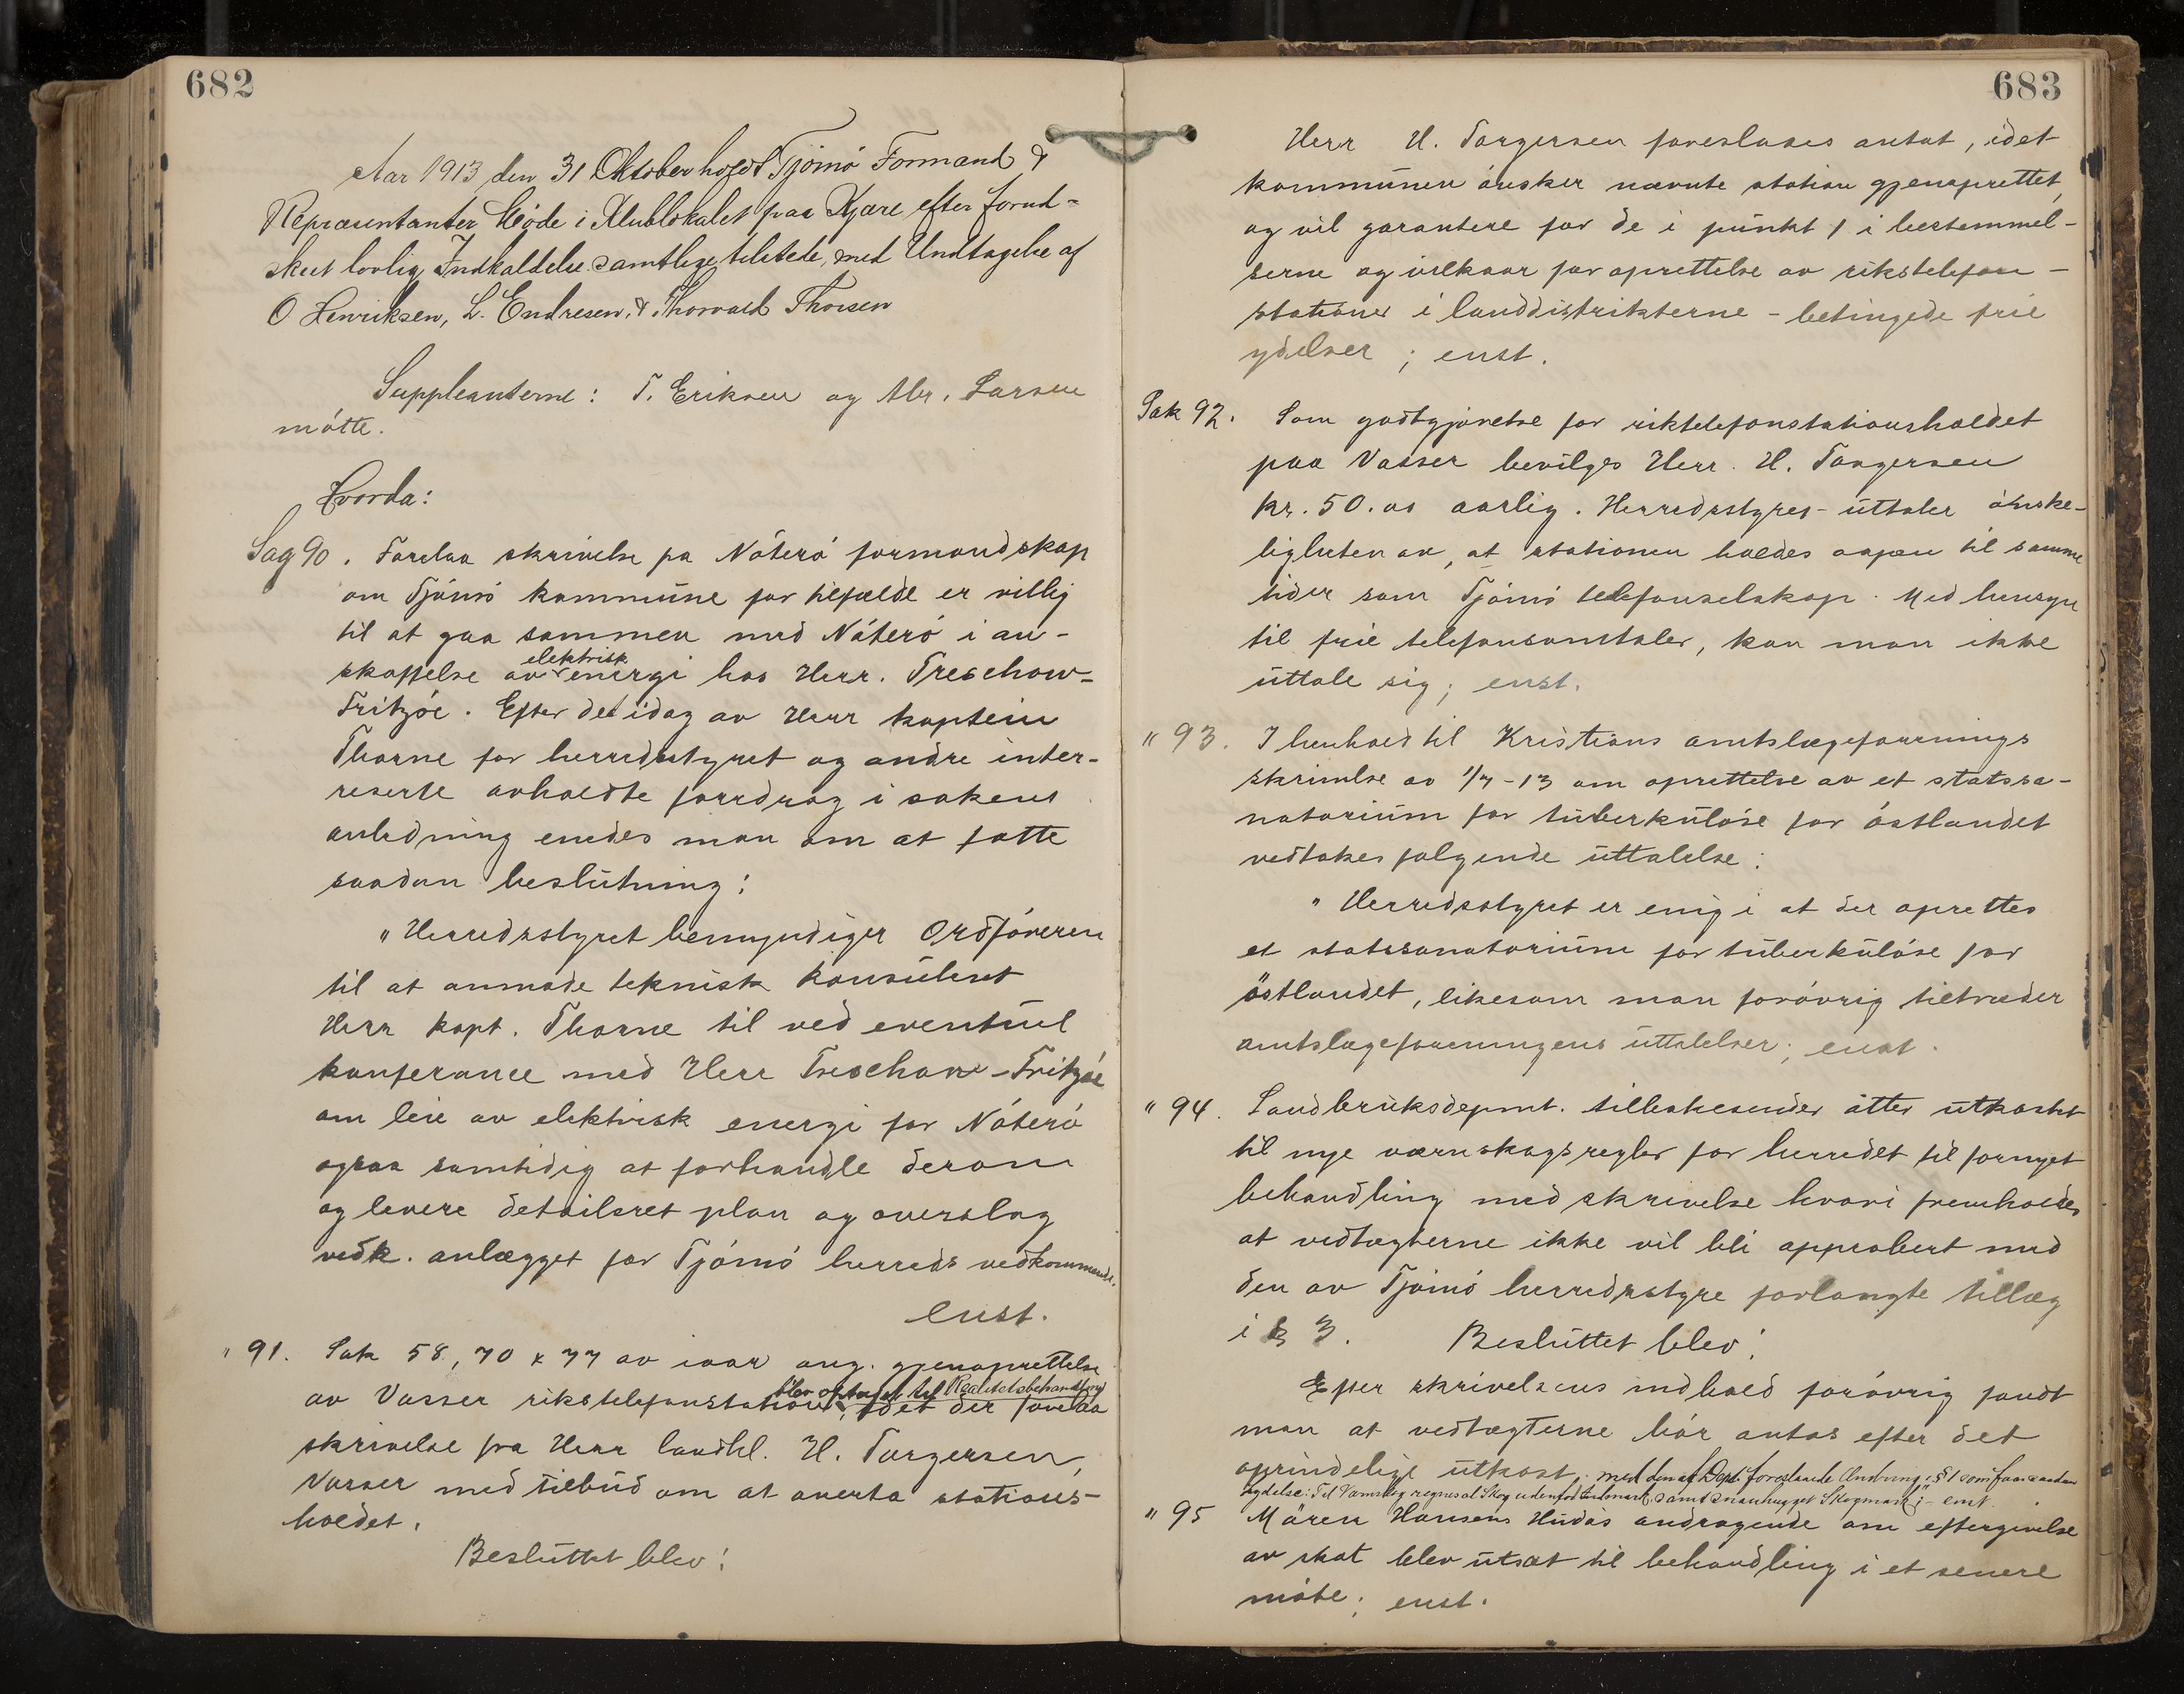 682
Aar 1913 den 31 Oktober holdt Tjömö Formand &
Repræsentanter Möde i Klublokalet paa Kjære efter forud-
skeet lovlig Indkaldelse samtlige tilstede, med Undtagelse af
O Henriksen, L. Endresen, & Thorvald Thorsen
Suppleanterne: T. Eriksen og Abr. Larsen
mötte.
Hvorda:
Sag 90. Forelaa skrivelse fra Nöterö formandskap
om Tjömö kommune for tilfælde er villig
til at gaa sammen med Nöterö i an-
skaffelse av elektrisk energi hos Herr. Treschow-
Fritzöe. Efter det idag av Herr kaptein
Thorne for herredsstyret og andre inter-
reserte avholdte foredrag i sakens
anledning enedes man om at fatte
saadan beslutning:
"Herredsstyret bemyndiger Ordföreren
til at anmode teknisk konsulent
Herr kapt. Thorne til ved eventuel
konferance med Herr Treschow-Fritzöe
om leie av elektrisk energi for Nöterö
ogsaa samtidig at forhandle derom
og levere detailert plan og overslag
vedk. anlægget for Tjömö herreds vedkommende.
enst.
" 91. Sak 58, 70 & 77 av iaar ang. gjenoprettelse
av Vasser rikstelefonstation blev optaget til Realitetsbehandling, idet der forelaa
skrivelse fra Herr landhl. H. Torgersen,
Vasser med tilbud om at overta stations-
holdet.
Besluttet blev:
683
Herr H. Torgersen foreslaaes antat, idet
kommunen önsker nævnte station gjenoprettet,
og vil garantere for de i punkt 1 i bestemmel-
serne og vilkaar for oprettelse av rikstelefon-
stationer i landdistrikterne - betingede frie
ydelser; enst.
Sak 92. Som godtgjörelse for rikstelefonstationsholdet
paa Vasser bevilges Herr. H. Torgersen
kr. 50.00 aarlig. Herredsstyres uttaler önske-
ligheten av, at stationen holdes aapen til samme
tider som Tjömö telefonselskap. Med hensyn
til frie telefonsamtaler, kan man ikke
uttale sig; enst.
" 93. I henhold til Kristians amtslægeforenings
skrivelse av 1/7-13 om oprettelse av et statssa-
natorium for tuberkulöse for östlandet
vedtokes fölgende uttalelse:
"Herredsstyret er enig i at der oprettes
et statssanatorium for tuberkulöse for
östlandet, likesom man forövrig tiltræder
amtslægeforeningens uttalelser; enst.
" 94. Landbruksdepmt. tilbakesender atter utkastet
til nye værnskogsregler for herredet til fornyet
behandling med skrivelse hvori fremholdes
at vedtægterne ikke vil bli approbert med
den av Tjömö herredsstyre forlangte tillæg
i § 3. Besluttet blev:
Efter skrivelsens indhold forövrig fandt
man at vedtægterne bör antas efter det
oprindelige utkast, med den af Dept. foreslaaede Ændring i § 1 som faar saadan
lydelse: Til Værnskog regnes al Skog udenfor Indmark, samt snauhugget Skogmark; - enst.
" 95 Mären Hansens Hudas andragende om eftergivelse
av skat blev utsat til behandling i et senere
möte; enst.